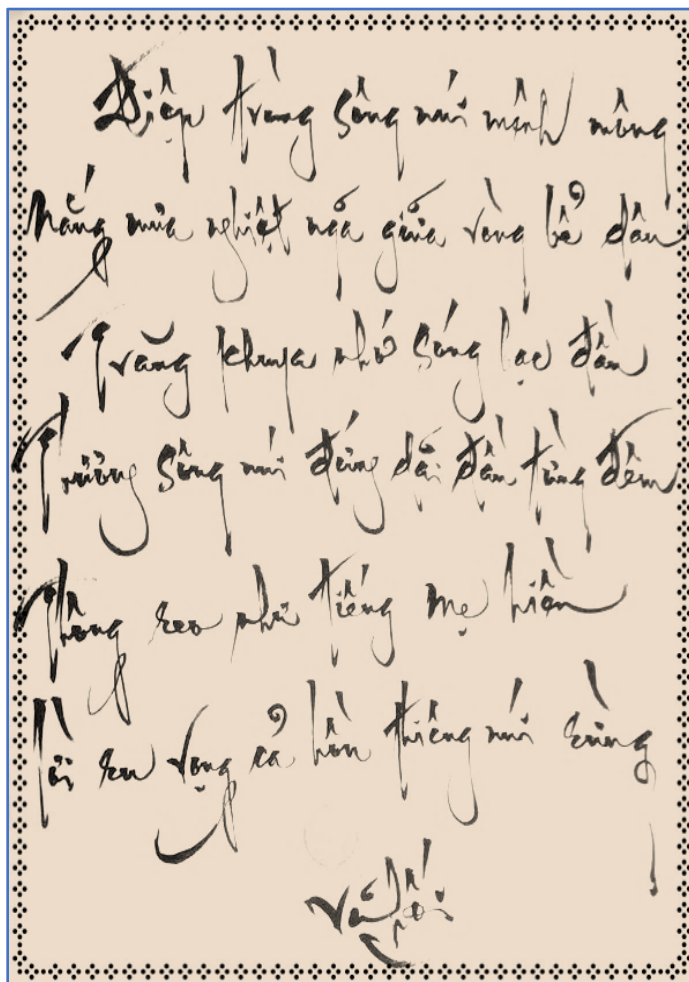 Điệp trùng sông núi mênh mông
Nắng mưa nghiệt ngã giữa vòng bể dâu
Trăng khuya nhớ sóng bạc đầu
Trường Sông núi đứng dãi dầu từng đêm
Thông reo như tiếng mẹ hiền
Lời ru vọng cả hồn thiêng núi rừng